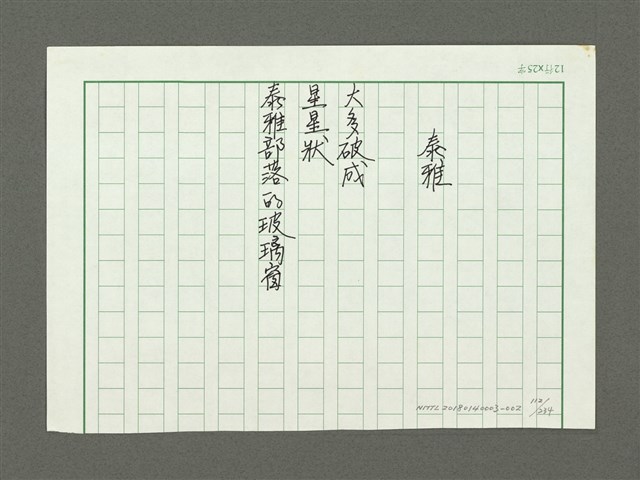 12行×25字
泰雅
大多破成
星星狀
泰雅部落的玻璃窗
NMTL20180140003-002
112/234